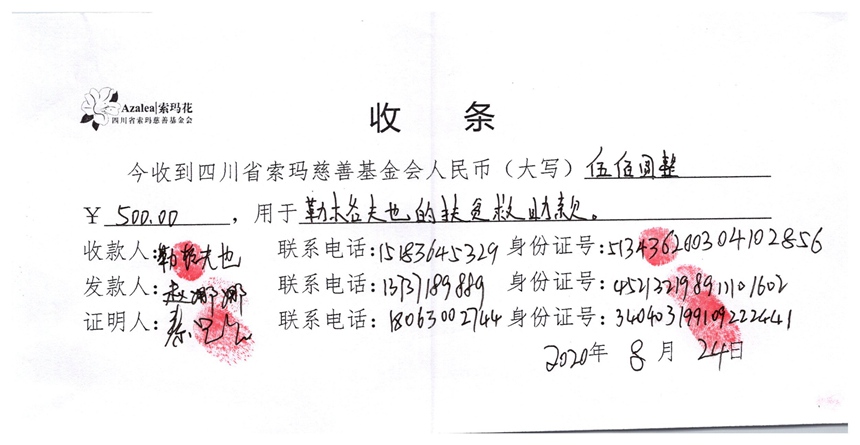 Azalea|索玛花
四川省索玛慈善基金会
收 条
今收到四川省索玛慈善基金会人民币（大写）伍佰圆整
￥500.00，用于勒木各夫也的扶贫救助款。
收款人：勒格夫也 联系电话：15183645329 身份证号：513436200304102856
发款人：赵娜娜 联系电话：13737189889 身份证号：452132198911101602
证明人：秦 联系电话：18063002744 身份证号：340403199109222441
2020年 8 月 24日